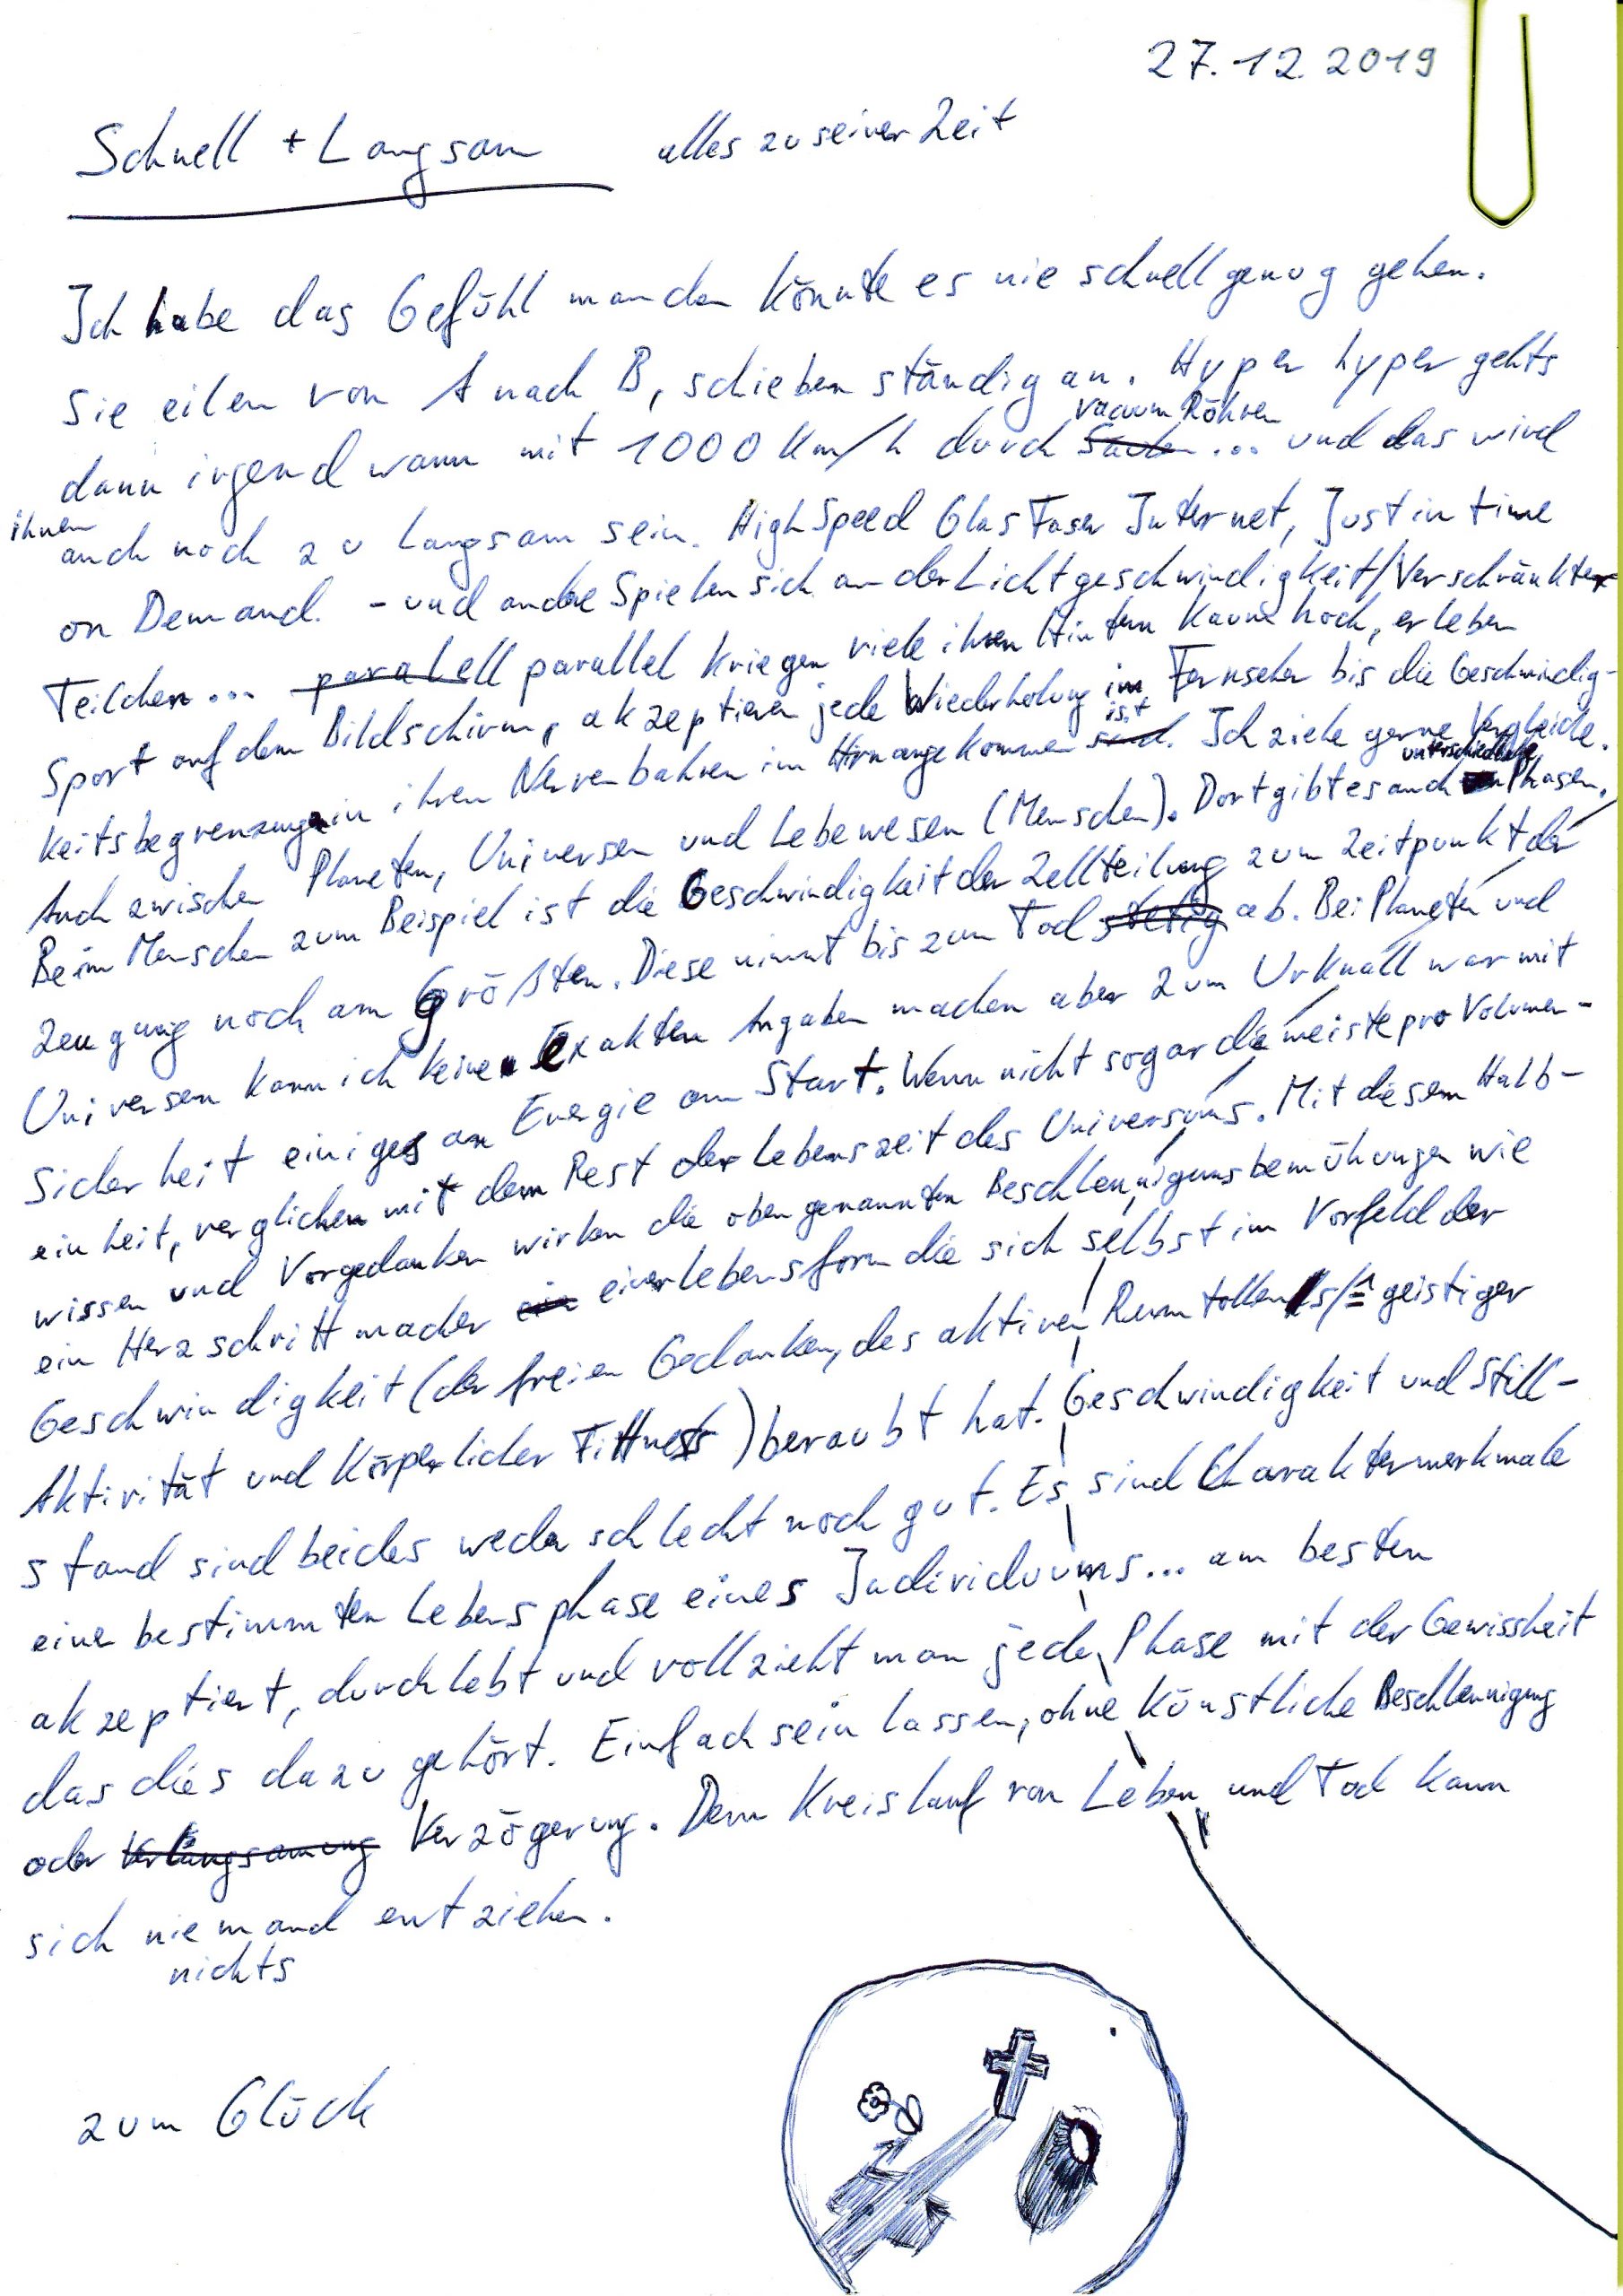 27.12.2019
Schnell + Langsam alles zu seiner Zeit
Ich habe das Gefühl manchen könnte es nie schnell genug gehen.
Sie eilen von A nach B, schieben ständig an. Hyper hyper gehts
vacuum Röhren
dann irgendwann mit 1000 Km/h durch ... und das wird
ihnen
auch noch zu langsam sein. High Speed Glas Faser Internet, Just in time
on Demand. - und andere Spielen sich an der Lichtgeschwindigkeit/Verschränkte
Teilchen... paralell parallel kriegen viele ihren Hintern kaum hoch, erleben
Sport auf dem Bildschirm, akzeptieren jede Wiederholung im Fernseher bis die Geschwindig-
ist
keitsbegrenzung in ihren Nervenbahnen im Hirn angekommen sind. Ich ziehe gerne Vergleiche.
unterschiedliche
Auch zwischen Planeten, Universen und Lebewesen (Menschen). Dort gibt es auch Phasen.
Beim Menschen zum Beispiel ist die Geschwindigkeit der Zellteilung zum Zeitpunkt der
Zeugung noch am Größten. Diese nimmt bis zum Tod stetig ab. Bei Planeten und
Universen kann ich keine Exakten Angaben machen aber zum Urknall war mit
Sicherheit einiges an Energie am Start. Wenn nicht sogar die meiste pro Volumen-
einheit, verglichen mit dem Rest der Lebenszeit des Universums. Mit diesem Halb-
wissen und Vorgedanken wirken die oben genannten Beschleunigunsbemühungen wie
ein Herzschrittmacher ein einer lebensform die sich selbst im Vorfeld der
Geschwindigkeit (der freien Gedanken, des aktiven Rumtollens/≙ geistiger
Aktivität und Körperlicher Fittness) beraubt hat. Geschwindigkeit und Still-
stand sind beides weder schlecht noch gut. Es sind Charaktermerkmale
einer bestimmten Lebensphase eines Individuums... am besten
akzeptiert, durchlebt und vollzieht man jede Phase mit der Gewissheit
das dies dazu gehört. Einfach sein lassen, ohne künstliche Beschleunigung
oder Verlangsamung Verzögerung. Dem Kreislauf von Leben und Tod kann
sich niemand entziehen.
nichts
zum Glück